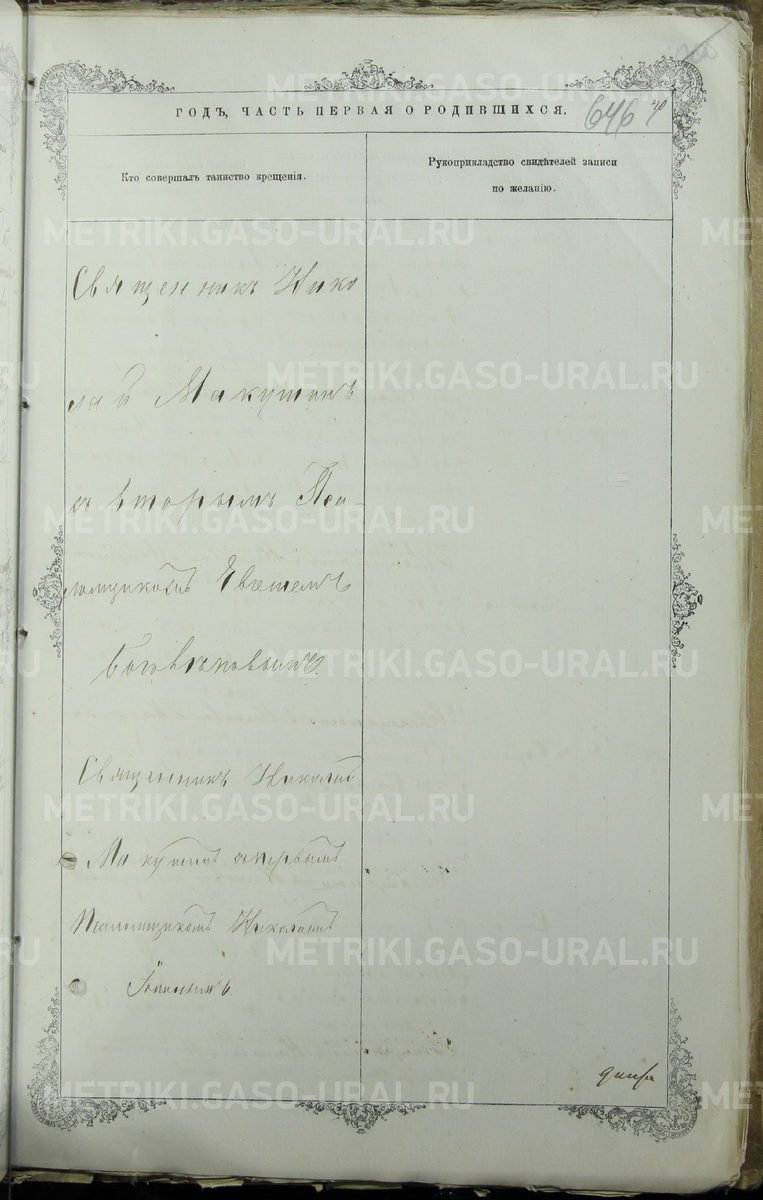 ГОДЪ, ЧАСТЬ ПЕРВАЯ О РОДИВШИХСЯ.
646 40
Кто совершалъ таинство крещенія.
Рукоприкладство свидѣтелей записи
по желанію.
Священникъ Нико
лай Макушинъ
съ вторымъ Пса-
ломщикомъ Евгеніемъ
Священникъ Николай
Макушинъ съ первымъ
Псаломщикомъ Николаемъ
METRIKI.GASO-URAL.RU